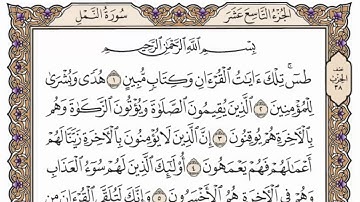 الجزء التاسع عشر
سورة النمل
بِسْمِ اللَّهِ الرَّحْمَٰنِ الرَّحِيمِ
طسٓ ۚ تِلْكَ ءَايَٰتُ ٱلْقُرْءَانِ وَكِتَابٍ مُّبِينٍ ١ هُدًى وَبُشْرَىٰ
لِلْمُؤْمِنِينَ ٢ ٱلَّذِينَ يُقِيمُونَ ٱلصَّلَوٰةَ وَيُؤْتُونَ ٱلزَّكَوٰةَ وَهُم
بِٱلْءَاخِرَةِ هُمْ يُوقِنُونَ ٣ إِنَّ ٱلَّذِينَ لَا يُؤْمِنُونَ بِٱلْءَاخِرَةِ زَيَّنَّا لَهُمْ
أَعْمَٰلَهُمْ فَهُمْ يَعْمَهُونَ ٤ أُو۟لَٰٓئِكَ ٱلَّذِينَ لَهُمْ سُوٓءُ ٱلْعَذَابِ
وَهُمْ فِى ٱلْءَاخِرَةِ هُمُ ٱلْأَخْسَرُونَ ٥ وَإِنَّكَ لَتُلَقَّى ٱلْقُرْءَانَ مِن
الحزب
٣٨